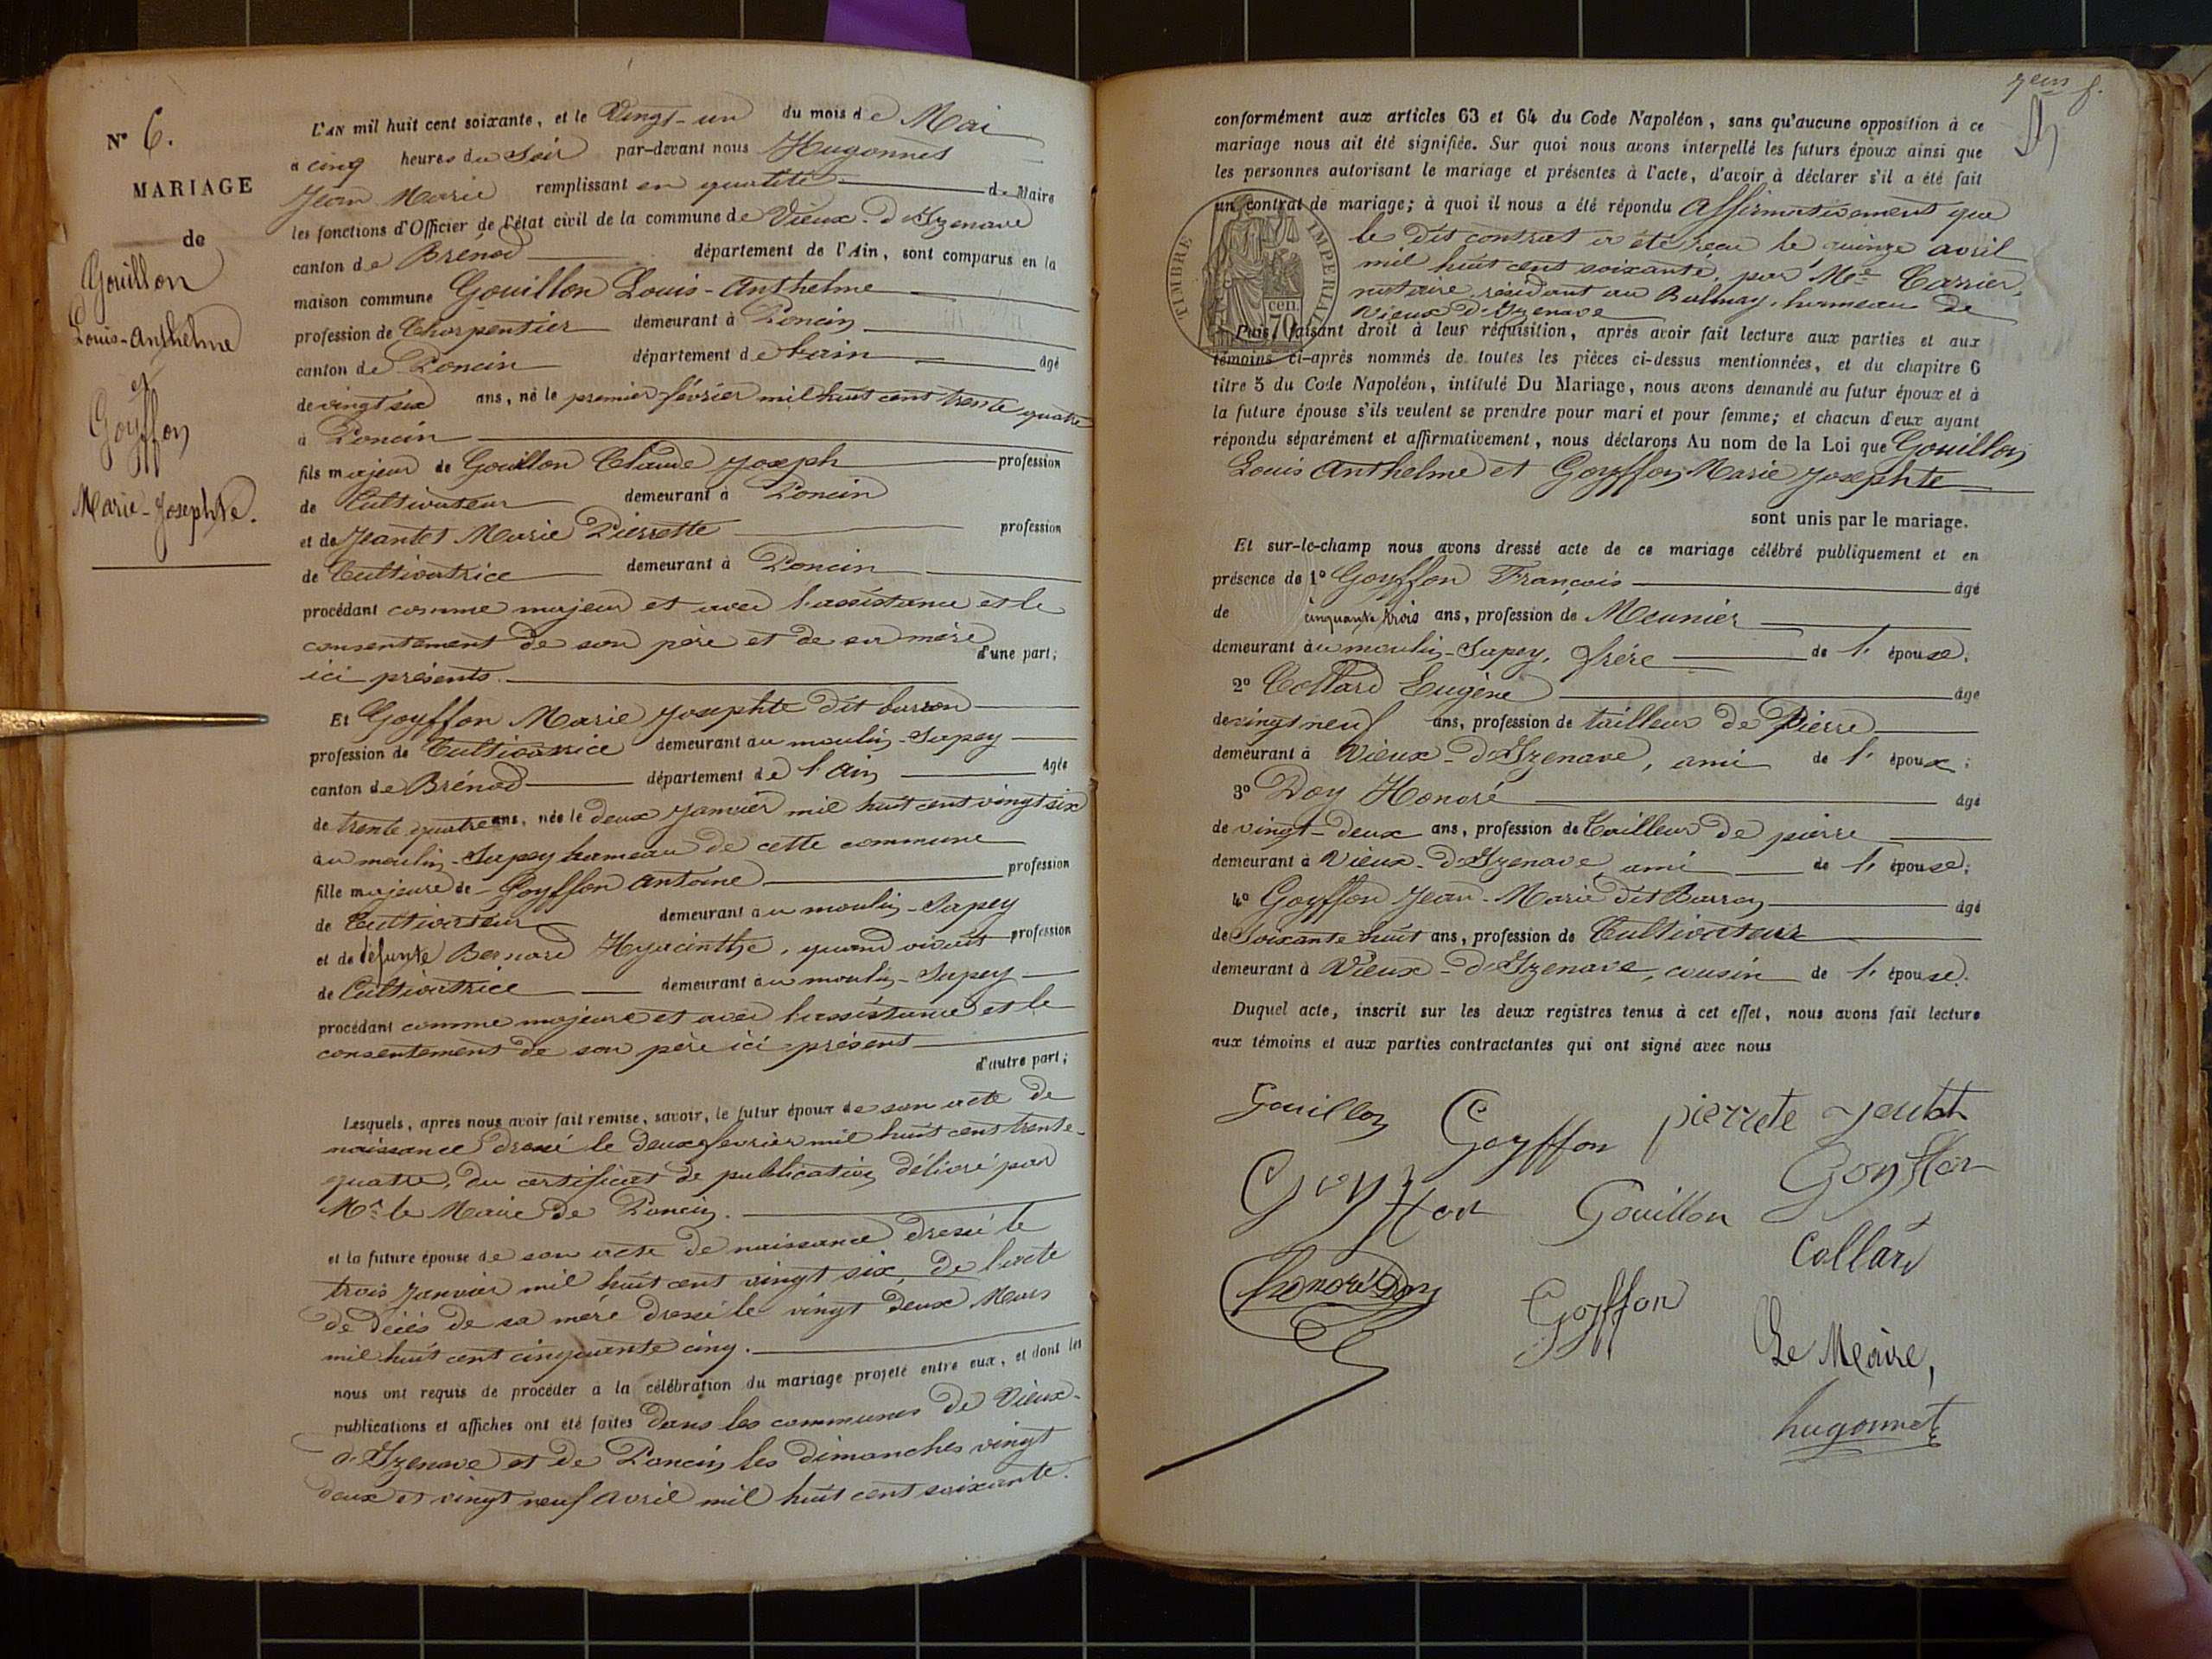 N° 6.
MARIAGE
de
Gouillon
Louis-Anthelme
et
Goyffon
Marie-Josephte.
L'AN mil huit cent soixante, et le Vingt-un du mois de Mai
a cinq heures du Soir par-devant nous Hugonnet
Jean Marie remplissant en qualité de Maire
les fonctions d'Officier de l'état civil de la commune de Vieux-d'Izenave
canton de Brénod département de l'Ain, sont comparus en la
maison commune Gouillon Louis-Anthelme
profession de Charpentier demeurant à Poncin
canton de Poncin département de l'ain âgé
de vingt six ans, né le premier février mil huit cent trente quatre
à Poncin
fils majeur de Gouillon Claude Joseph profession
de Cultivateur demeurant à Poncin
et de Jeantet Marie Pierrette profession
de Cultivatrice demeurant à Poncin
procédant comme majeur et avec l'assistance et le
consentement de son père et de sa mère
ici présents. d'une part;
Et Goyffon Marie Josephte dit barron
profession de Cultivatrice demeurant au moulin-Sapey
canton de Brénod département de l'Ain âgée
de trente quatre ans, née le deux Janvier mil huit cent vingt six
au moulin-Sapey hameau de cette commune
fille majeure de Goyffon Antoine profession
de Cultivateur demeurant au moulin-Sapey
et de défunte Bernard Hyacinthe, quand vivait profession
de Cultivatrice demeurant au moulin-Sapey
procédant comme majeure et avec l'assistance et le
consentement de son père ici présent
d'autre part;
Lesquels, après nous avoir fait remise, savoir, le futur époux de son acte de
naissance dressé le deux février mil huit cent trente-
quatre, du certificat de publication délivré par
Mr le Maire de Poncin.
et la future épouse de son acte de naissance dressé le
trois Janvier mil huit cent vingt six, de l'acte
de décès de sa mère dressé le vingt deux Mars
mil huit cent cinquante cinq.
nous ont requis de procéder à la célébration du mariage projeté entre eux, et dont les
publications et affiches ont été faites dans les communes de Vieux-
d'Izenave et de Poncin les dimanches vingt
deux et vingt neuf avril mil huit cent soixante.
conformément aux articles 63 et 64 du Code Napoléon, sans qu'aucune opposition à ce
mariage nous ait été signifiée. Sur quoi nous avons interpellé les futurs époux ainsi que
les personnes autorisant le mariage et présentes à l'acte, d'avoir à déclarer s'il a été fait
un contrat de mariage; à quoi il nous a été répondu Affirmativement que
le dit contrat a été reçu le quinze avril
mil huit cent soixante, par Me Carrier,
notaire, résidant au Balmay, hameau de
Vieux d'Izenave
TIMBRE IMPERIAL
70 cen.
Puis, faisant droit à leur réquisition, après avoir fait lecture aux parties et aux
témoins ci-après nommés de toutes les pièces ci-dessus mentionnées, et du chapitre 6
titre 5 du Code Napoléon, intitulé Du Mariage, nous avons demandé au futur époux et à
la future épouse s'ils veulent se prendre pour mari et pour femme; et chacun d'eux ayant
répondu séparément et affirmativement, nous déclarons Au nom de la Loi que Gouillon
Louis Anthelme et Goyffon Marie Josephte
sont unis par le mariage.
Et sur-le-champ nous avons dressé acte de ce mariage célébré publiquement et en
présence de 1° Goyffon François âgé
de cinquante trois ans, profession de Meunier
demeurant au moulin-Sapey, frère de l' épouse;
2° Collard Eugène âgé
de vingt neuf ans, profession de tailleur de Pierre
demeurant à Vieux-d'Izenave, ami de l' époux;
3° Doy Honoré âgé
de vingt-deux ans, profession de Tailleur de pierre
demeurant à Vieux-d'Izenave, ami de l' épouse;
4° Goyffon Jean-Marie dit Barron âgé
de Soixante huit ans, profession de Cultivateur
demeurant à Vieux-d'Izenave, cousin de l' épouse.
Duquel acte, inscrit sur les deux registres tenus à cet effet, nous avons fait lecture
aux témoins et aux parties contractantes qui ont signé avec nous
Gouillon Goyffon pierrete
Goyffon Gouillon Goyffon
Collard
honoré Doy Goyffon
Le Maire,
hugonnet